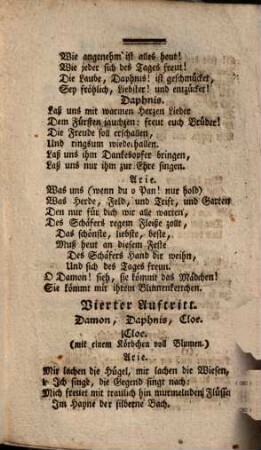 Wie angenehm ist alles heut!
Wie jeder sich des Tages freut!
Die Laube, Daphnis! ist geschmücket,
Sey fröhlich, Liebster! und entzücket!
Daphnis.
Laß uns mit warmen Herzen Lieder
Dem Fürsten jauchzen: freut euch Brüder!
Die Freude soll erschallen,
Und ringsum wiederhallen.
Laß uns ihm Dankesopfer bringen,
Laß uns nur ihm zur Ehre singen.
Arie.
Was uns (wenn du o Pan! nur hold)
Was Herde, Feld, und Trift, und Garten
Den nur für dich wir alle warten,
Des Schäfers regem Fleiße zollt,
Das schönste, liebste, beste,
Muß heut an diesem Feste
Des Schäfers Hand dir weihn,
Und sich des Tages freun.
O Damon! sieh, sie kömmt das Mädchen!
Sie kömmt mir ihrem Blumenkertchen.
Vierter Auftritt.
Damon, Daphnis, Cloe.
Cloe.
(mit einem Körbchen voll Blumen.)
Arie.
Mir lachen die Hügel, mir lachen die Wiesen,
Ich singe, die Gegend singt nach:
Mich freuet mit traulich hin murmelnden Flüssen
Im Hayne der silberne Bach.